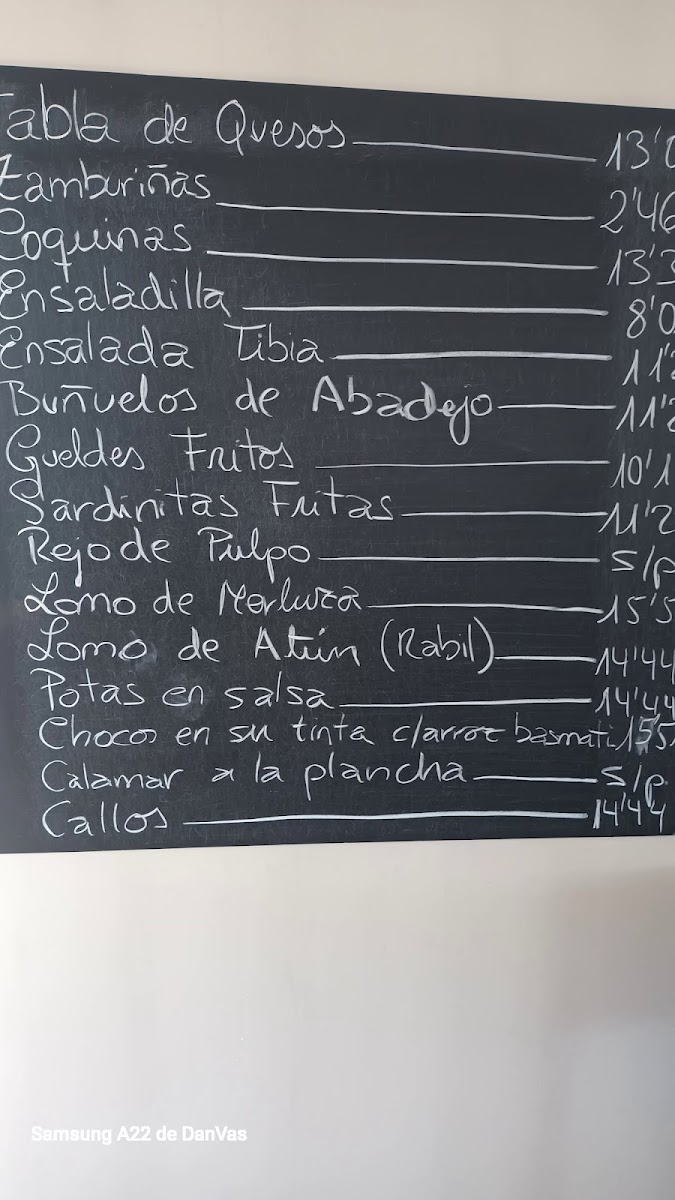 Tabla de Quesos 13'0
Zamburiñas 2'46
Coquinas 13'3
Ensaladilla 8'0
Ensalada Tibia 11'2
Buñuelos de Abadejo 11'2
Gueldes Fritos 10'1
Sardinitas Fritas 11'2
Rejo de Pulpo s/p
Lomo de Merluza 15'5
Lomo de Atún (Rabil) 14'44
Potas en salsa 14'44
Choco en su tinta c/arroz basmati 15'5
Calamar a la plancha s/p
Callos 14'44
Samsung A22 de DanVas